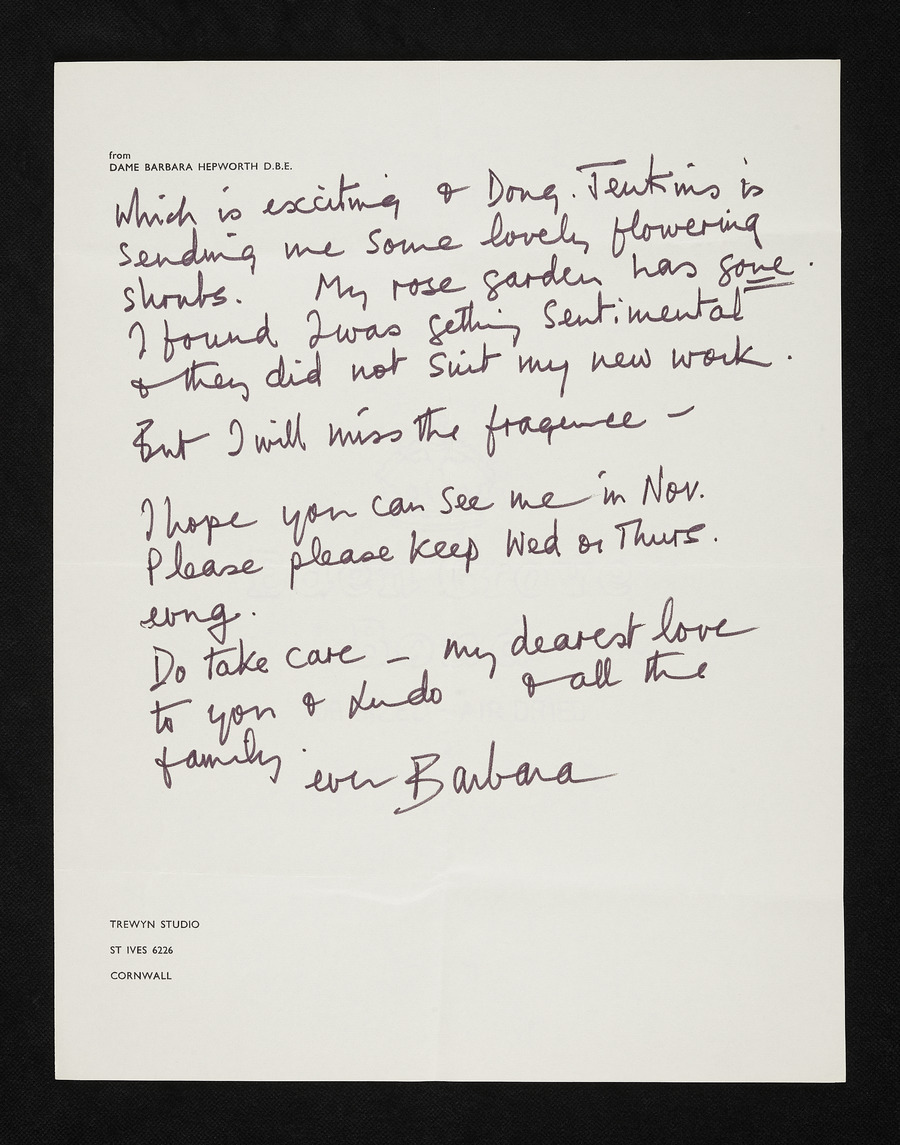 from
DAME BARBARA HEPWORTH D.B.E.
Which is exciting & Doug. Jenkins is
sending me some lovely flowering
shrubs. My rose garden has gone.
I found I was getting sentimental
& they did not suit my new work.
But I will miss the fragence –
I hope you can see me in Nov.
Please please keep Wed or Thurs.
evng.
Do take care – my dearest love
to you & Ludo & all the
family.
ever Barbara
TREWYN STUDIO
ST IVES 6226
CORNWALL